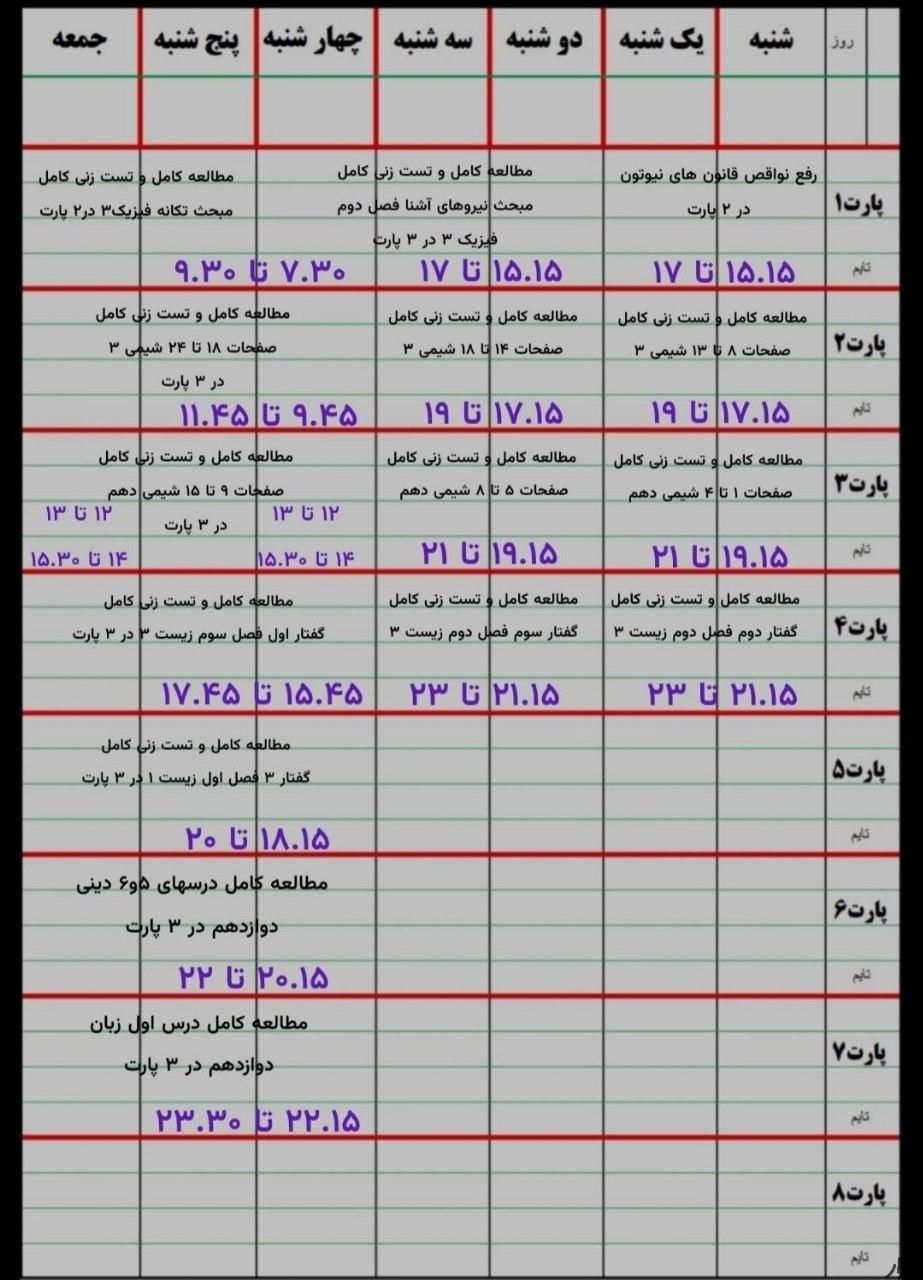 روز شنبه یک شنبه دو شنبه سه شنبه چهار شنبه پنج شنبه جمعه
پارت۱
رفع نواقص قانون های نیوتون
در ۲ پارت
۱۵.۱۵ تا ۱۷
مطالعه کامل و تست زنی کامل
مبحث نیروهای آشنا فصل دوم
فیزیک ۳ در ۳ پارت
۱۵.۱۵ تا ۱۷
مطالعه کامل و تست زنی کامل
مبحث تکانه فیزیک۳ در۲ پارت
۷.۳۰ تا ۹.۳۰
تایم
پارت۲
مطالعه کامل و تست زنی کامل
صفحات ۸ تا ۱۳ شیمی ۳
۱۷.۱۵ تا ۱۹
مطالعه کامل و تست زنی کامل
صفحات ۱۴ تا ۱۸ شیمی ۳
۱۷.۱۵ تا ۱۹
مطالعه کامل و تست زنی کامل
صفحات ۱۸ تا ۲۴ شیمی ۳
در ۳ پارت
۹.۴۵ تا ۱۱.۴۵
تایم
پارت۳
مطالعه کامل و تست زنی کامل
صفحات ۱ تا ۴ شیمی دهم
۱۹.۱۵ تا ۲۱
مطالعه کامل و تست زنی کامل
صفحات ۵ تا ۸ شیمی دهم
۱۹.۱۵ تا ۲۱
مطالعه کامل و تست زنی کامل
صفحات ۹ تا ۱۵ شیمی دهم
در ۳ پارت
۱۲ تا ۱۳
۱۴ تا ۱۵.۳۰
۱۲ تا ۱۳
۱۴ تا ۱۵.۳۰
تایم
پارت۴
مطالعه کامل و تست زنی کامل
گفتار دوم فصل دوم زیست ۳
۲۱.۱۵ تا ۲۳
مطالعه کامل و تست زنی کامل
گفتار سوم فصل دوم زیست ۳
۲۱.۱۵ تا ۲۳
مطالعه کامل و تست زنی کامل
گفتار اول فصل سوم زیست ۳ در ۳ پارت
۱۵.۴۵ تا ۱۷.۴۵
تایم
پارت۵
مطالعه کامل و تست زنی کامل
گفتار ۳ فصل اول زیست ۱ در ۳ پارت
۱۸.۱۵ تا ۲۰
تایم
پارت۶
مطالعه کامل درسهای ۵و۶ دینی
دوازدهم در ۳ پارت
۲۰.۱۵ تا ۲۲
تایم
پارت۷
مطالعه کامل درس اول زبان
دوازدهم در ۳ پارت
۲۲.۱۵ تا ۲۳.۳۰
تایم
پارت۸
تایم